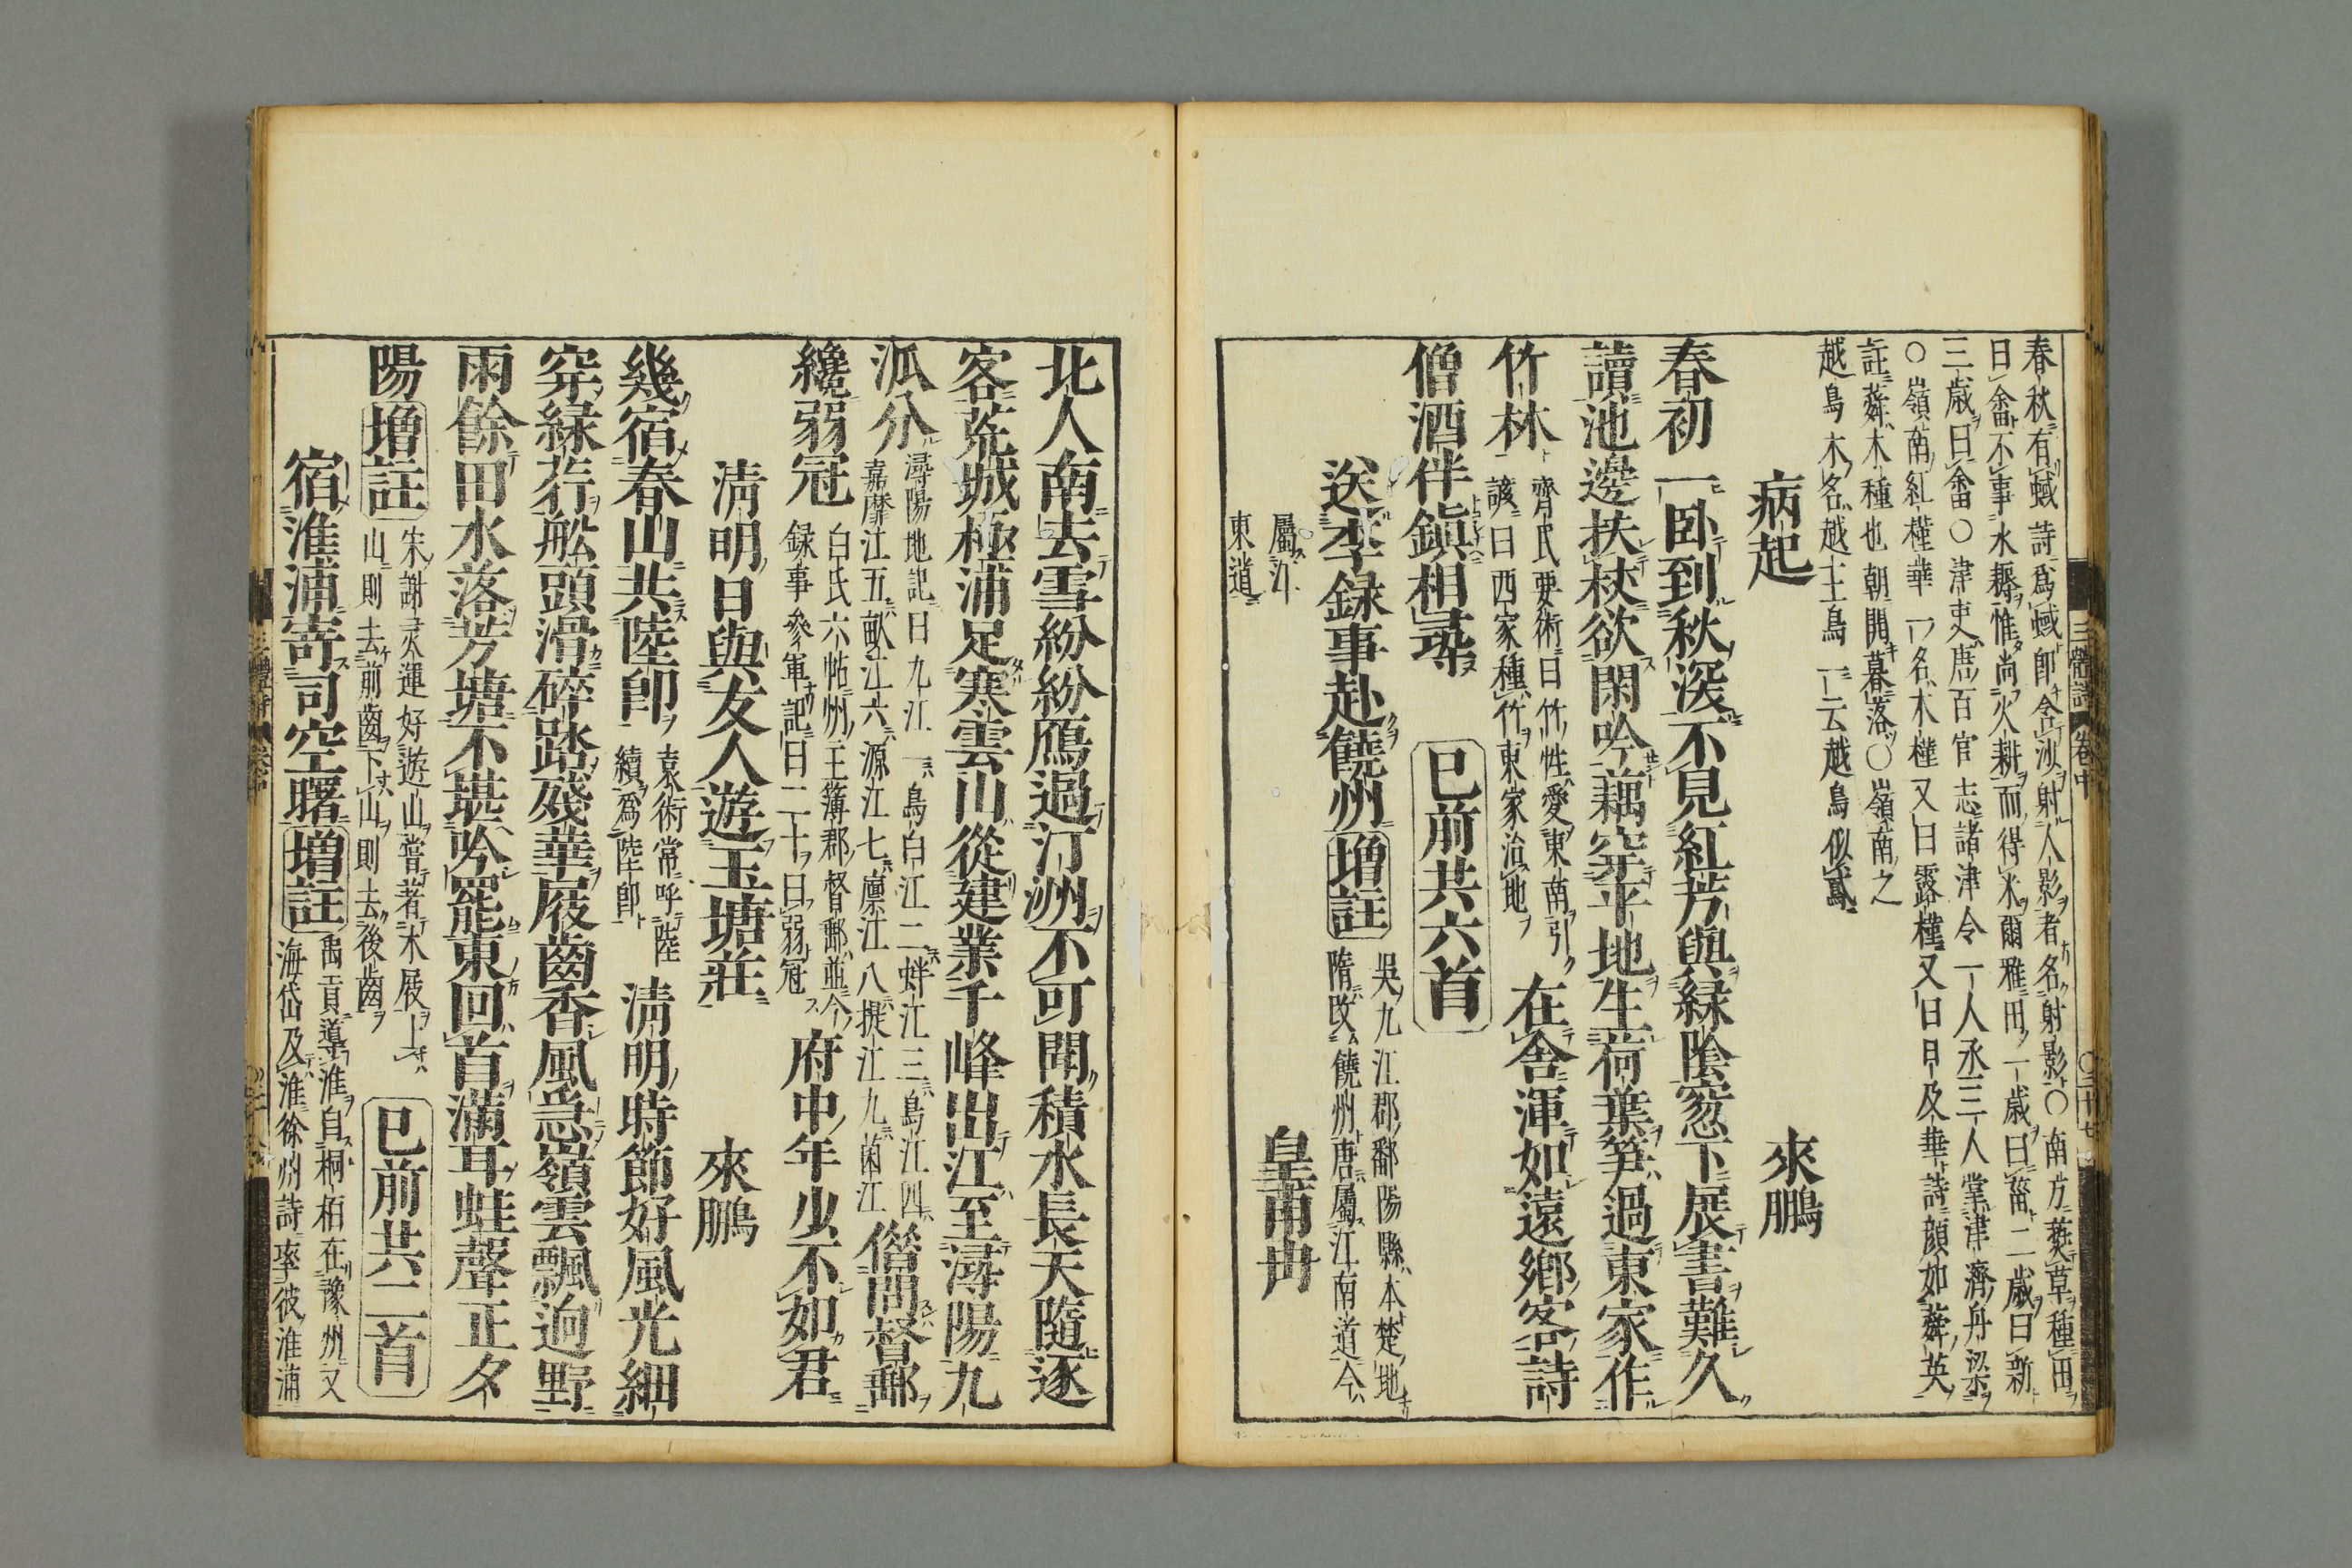 春秋有蜮詩爲蜮卽含沙射人影者名射影○南方藝草種田
曰畬不事水耨惟尚火耕而得米爾雅田一歲曰菑二歲曰新
三歲曰畬○津吏唐百官志諸津令一人丞三人掌津濟舟梁
○嶺南紅槿華一名木槿又曰露槿又曰日及華詩顔如蕣英
註蕣木種也朝開暮落○嶺南之
越鳥木名越王鳥一云越鳥似鳶
病起　來鵬
春初一臥到秋深不見紅芳與綠陰窓下展書難久
讀池邊扶杖欲閑吟藕穿平地生荷葉笋過東家作
竹林
齊民要術曰竹性愛東南引
諺曰西家種竹東家治地
在舍渾如遠鄉客詩
僧酒伴鎭相尋　已前共六首
送李録事赴饒州增註
吳九江郡鄱陽縣本楚地
隋改饒州唐屬江南道今
屬江
東道
皇甫冉
三體詩　卷中　○二十七
北人南去雪紛紛鴈過汀洲不可聞積水長天隨逐
客荒城極浦足寒雲山從建業千峰出江至潯陽九
派分
潯陽地記曰九江一烏白江二蚌江三烏江四
嘉靡江五畎江六源江七廩江八提江九菌江
借問督郵
纔弱冠
白氏六帖州主簿郡督郵並今
録事參軍記曰二十曰弱冠
府中年少不如君
淸明日與友人遊玉塘莊　來鵬
幾宿春山共陸郞
袁術常呼陸
續爲陸郞
淸明時節好風光細
穿綠荇舩頭滑碎踏殘華屐齒香風急嶺雲飄迥野
雨餘田水落芳塘不堪吟罷東回首滿耳蛙聲正夕
陽增註
宋謝灵運好遊山嘗著木屐上
山則去前齒下山則去後齒
已前共二首
宿淮浦寄司空曙增註
禹貢導淮自桐栢在豫州又
海岱及淮徐州詩率彼淮浦